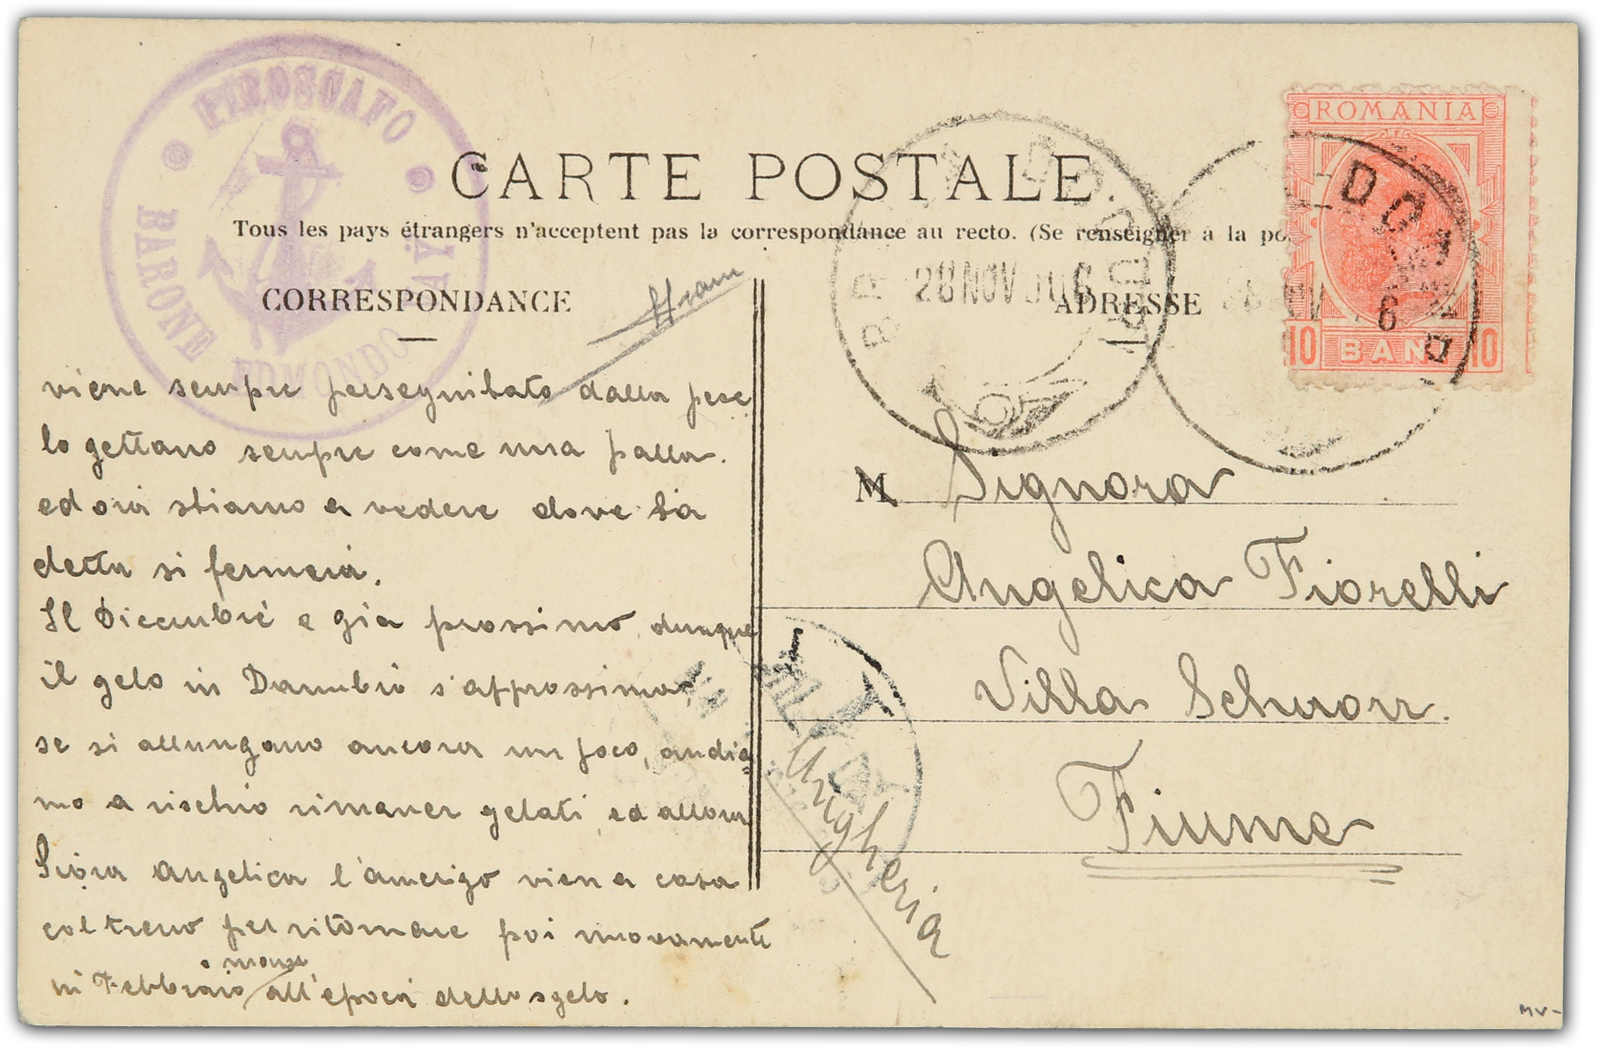 PIROSCAFO
BARONE EDMONDO VAY
CARTE POSTALE.
Tous les pays étrangers n'acceptent pas la correspondance au recto. (Se renseigner à la po
CORRESPONDANCE
ADRESSE
ROMANIA
10 BANI 10
28 NOV 906
6
viene sempre perseguitato dalla pece
lo gettano sempre come una palla.
ed ora stiamo a vedere dove la
detta si fermerà.
Il Diecembre e gia prossimo, dunque
il gelo in Danubio s'approssima,
se si allungano ancora un poco, andia=
mo a rischio rimaner gelati, ed allora
Siora Angelica l'amerigo vien a casa
col treno per ritornare poi nuovamente
in Febbraio o marzo all'epoca dello sgelo.
M Signora
Angelica Fiorelli
Villa Schuorr.
Fiume
Ungheria
MV-